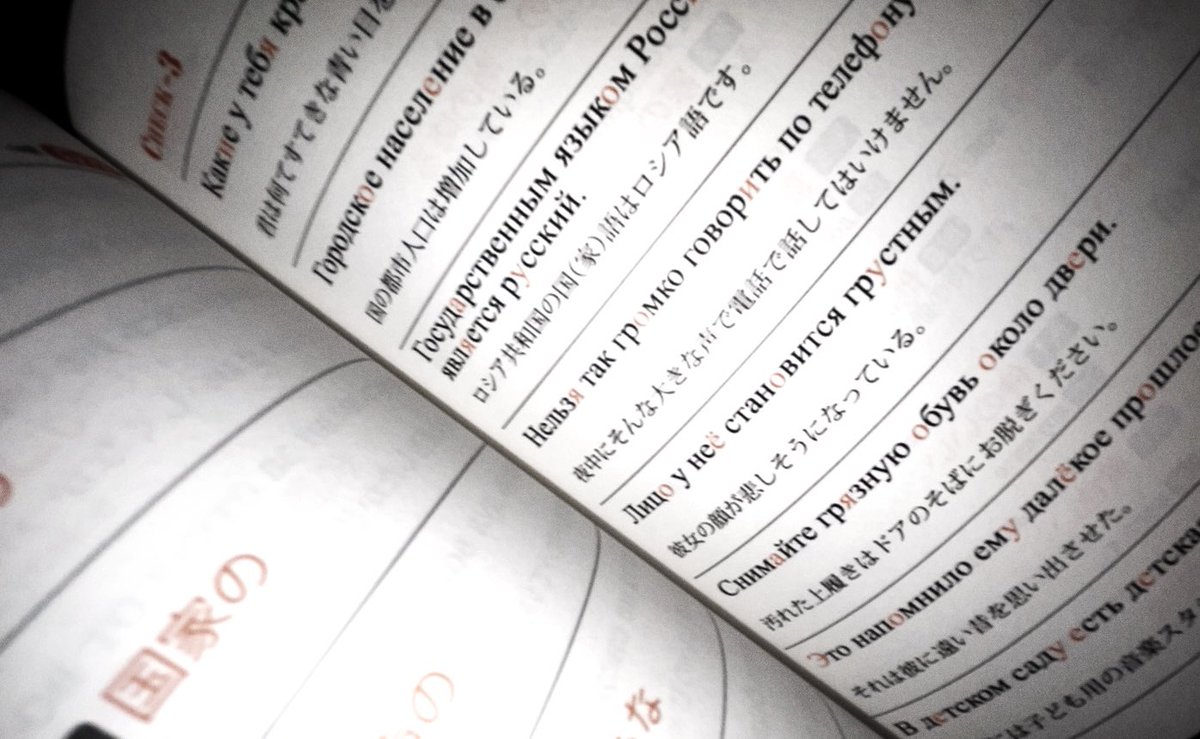 Список-3
Какие у тебя кра
君は何てすてきな青い目を
Городское население в
国の都市人口は増加している。
Государственным языком Росси
является русский.
ロシア共和国の国(家)語はロシア語です。
Нельзя так громко говорить по телефону
夜中にそんな大きな声で電話で話してはいけません。
Лицо у неё становится грустным.
彼女の顔が悲しそうになっている。
Снимайте грязную обувь около двери.
汚れた上履きはドアのそばにお脱ぎください。
Это напомнило ему далёкое прошло
それは彼に遠い昔を思い出させた。
В детском саду есть детска
には子ども用の音楽スタ
国家の
の
な